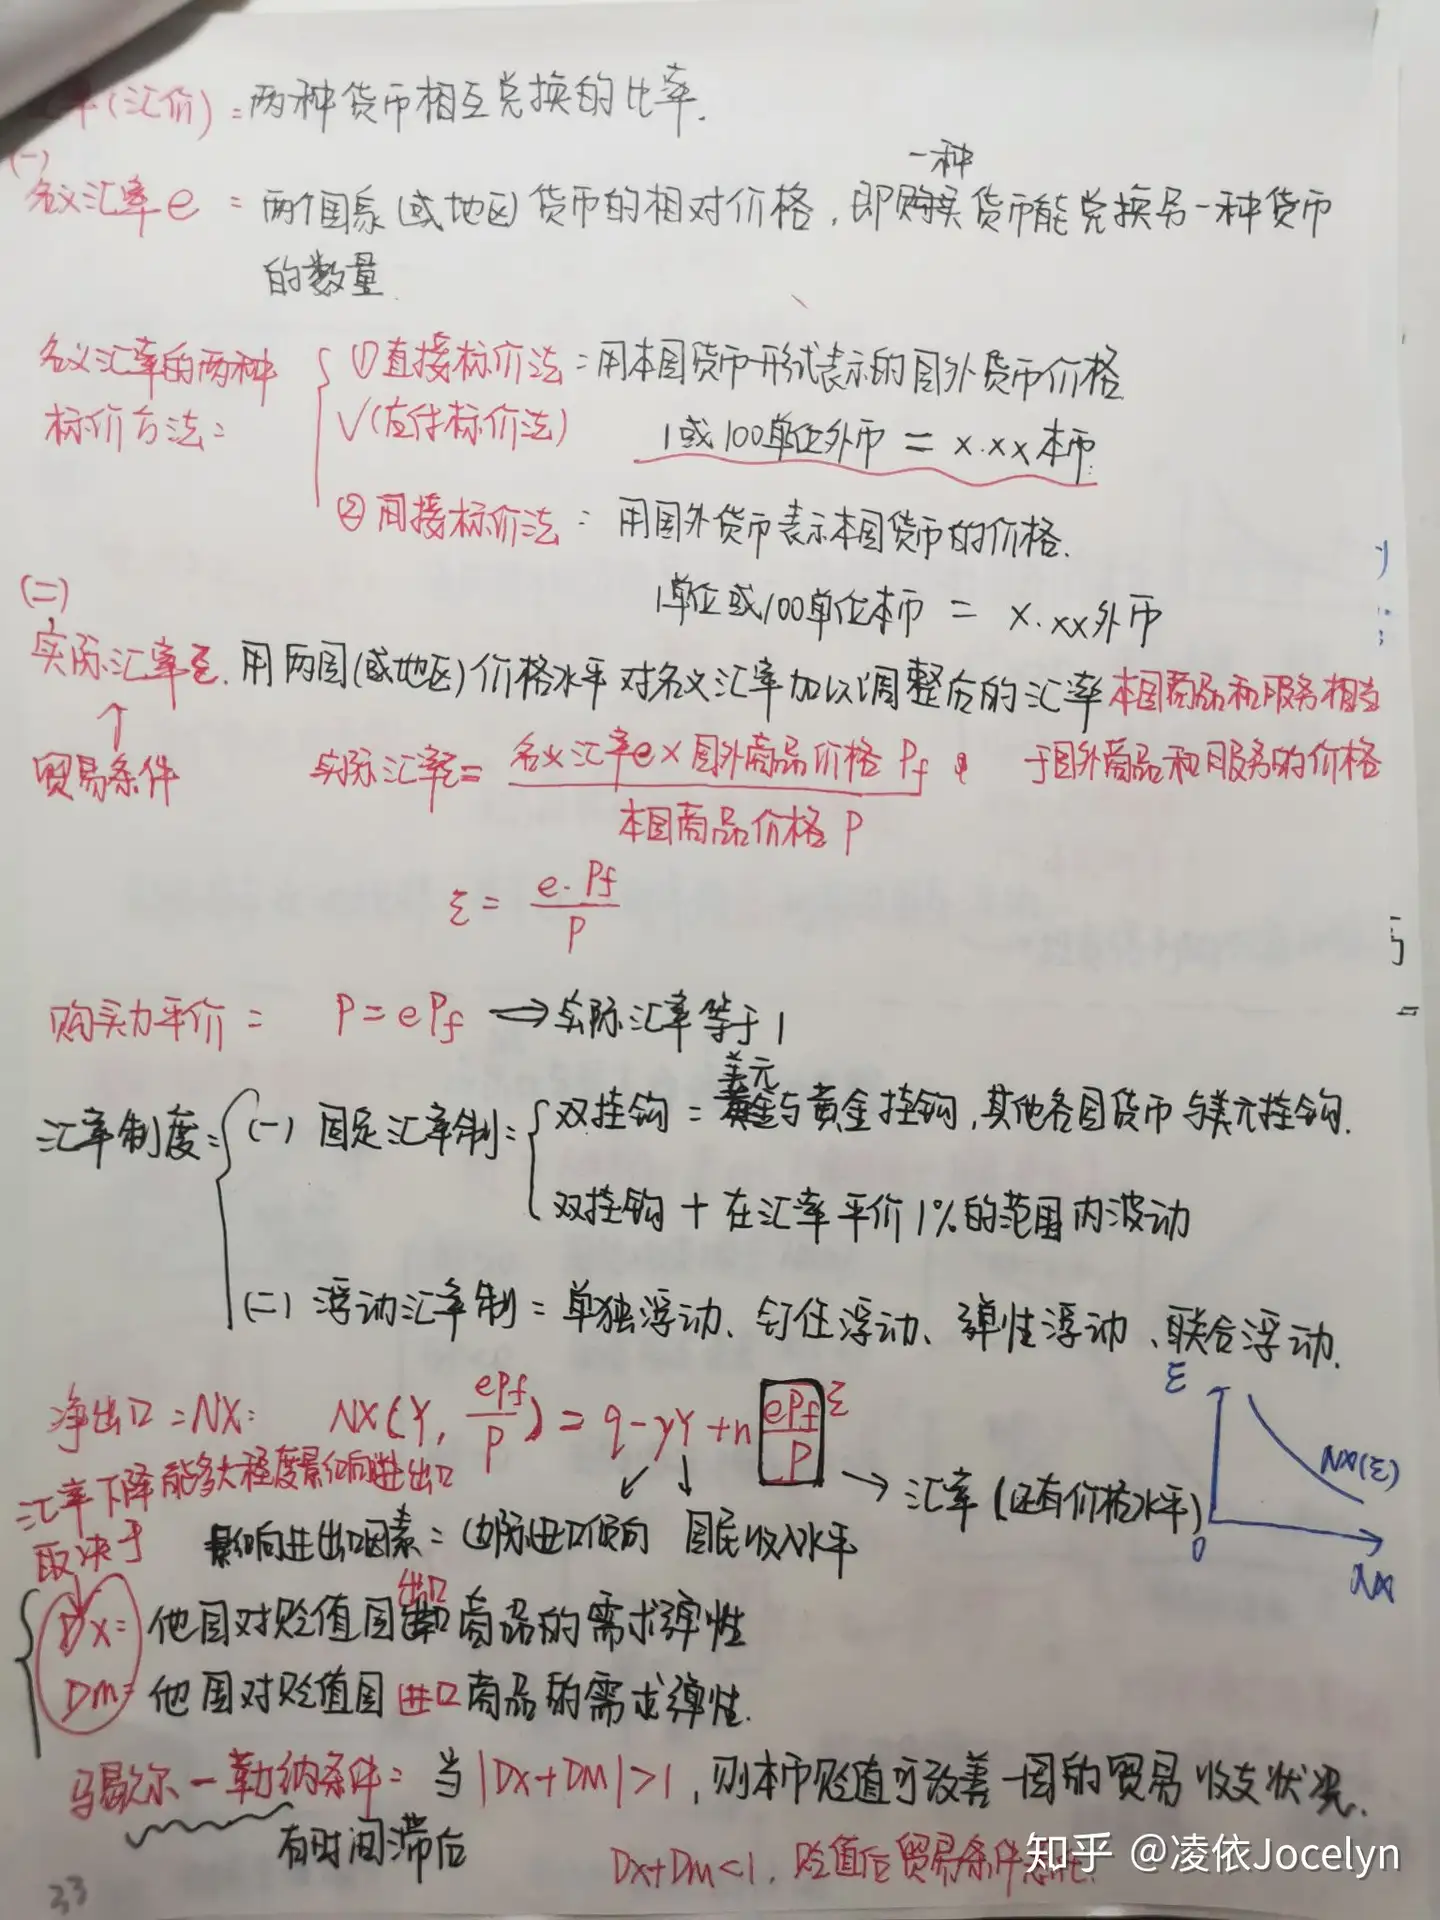 率(汇价)=两种货币相互兑换的比率.
(一)
名义汇率e = 两个国家(或地区)货币的相对价格,即购买一种货币能兑换另一种货币
的数量.
名义汇率的两种
标价方法:
①直接标价法:用本国货币形式表示的国外货币价格
√(应付标价法)
1或100单位外币 = x.xx本币.
②间接标价法: 用国外货币表示本国货币的价格.
1单位或100单位本币 = x.xx外币
(二)
实际汇率ξ.用两国(或地区)价格水平对名义汇率加以调整后的汇率 本国商品和服务相当
于国外商品和服务的价格
↑
贸易条件
实际汇率ξ= 名义汇率e×国外商品价格 Pf
本国商品价格 P
ξ = e·Pf / P
购买力平价: P=ePf ⟹实际汇率等于1
汇率制度:
(一)固定汇率制:
双挂钩:美元与黄金挂钩,其他各国货币与美元挂钩.
双挂钩+在汇率平价1%的范围内波动
(二)浮动汇率制:单独浮动、钉住浮动、弹性浮动、联合浮动.
净出口=NX: NX(Y, ePf/P)=q-γY+n ePf/P ξ
→汇率(还有价格水平)
ξ
NX(ξ)
0
NX
汇率下降能多大程度影响进出口
取决于
影响进出口因素:边际进口倾向 国民收入水平
Dx: 他国对贬值国出口商品的需求弹性
Dm: 他国对贬值国进口商品的需求弹性.
马歇尔-勒纳条件:当|Dx+DM|>1,则本币贬值可改善一国的贸易收支状况.
有时间滞后
Dx+Dm<1,贬值后贸易条件
33
知乎 @凌依Jocelyn